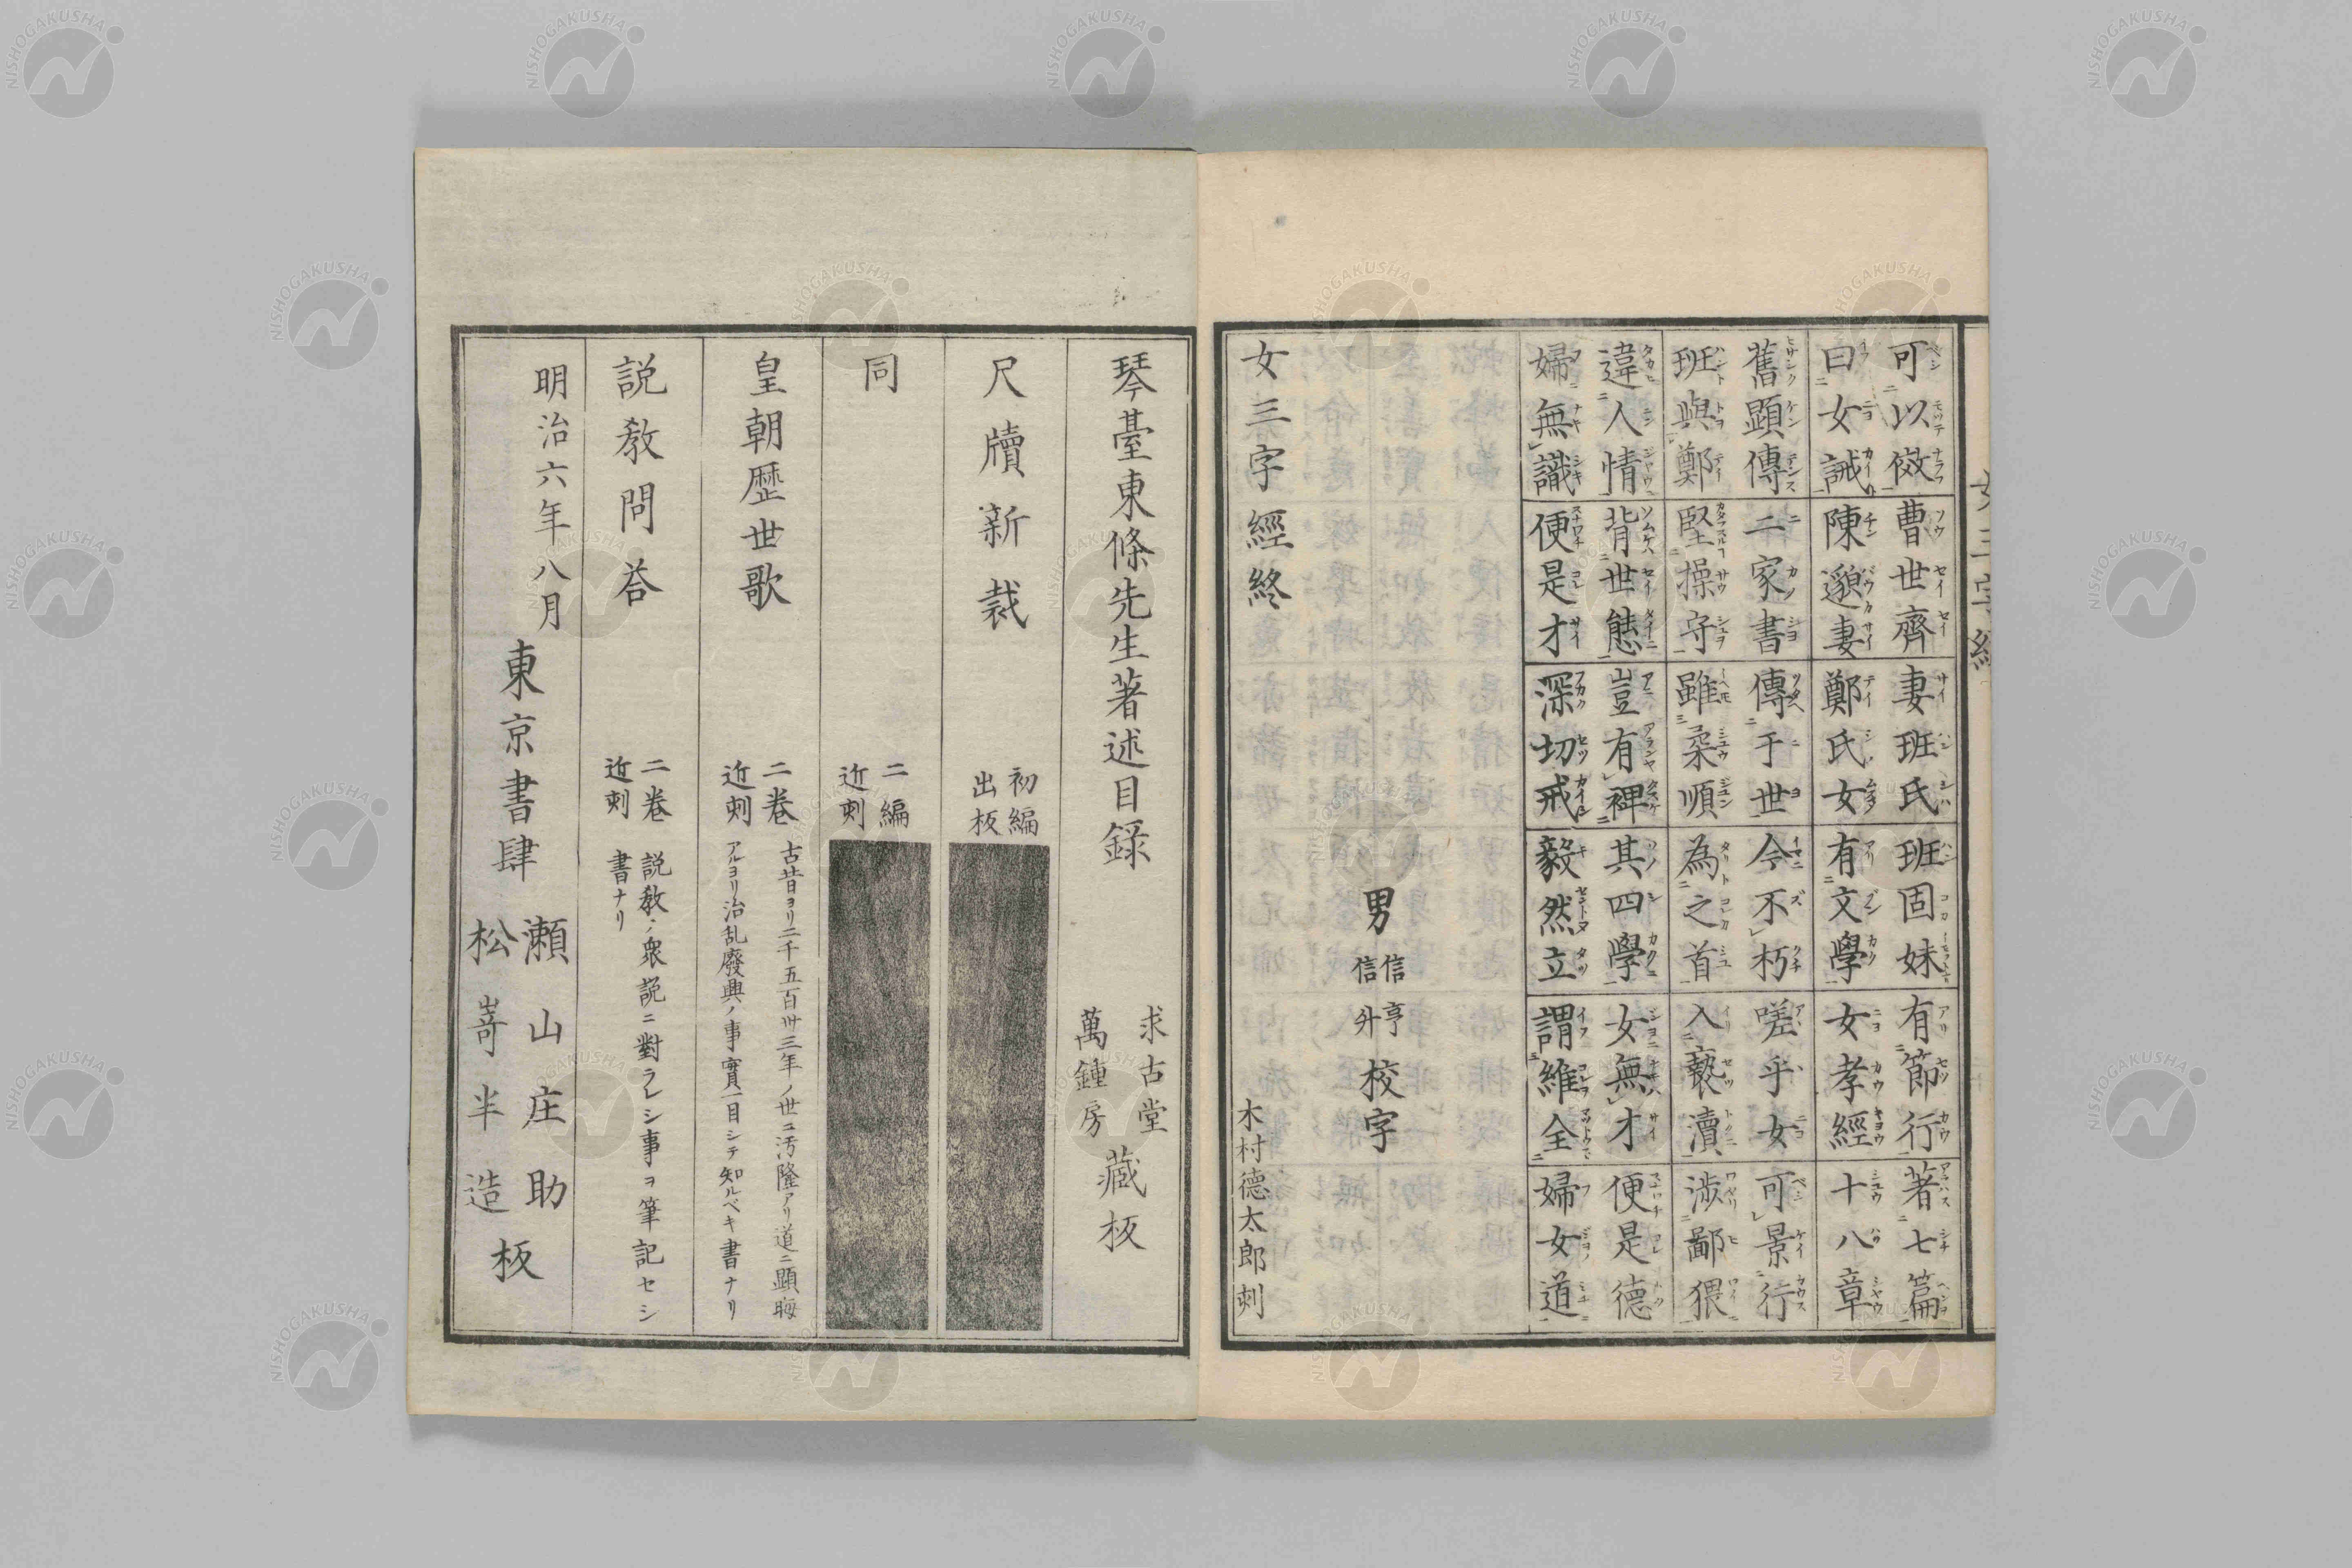 女三字經
可以傚曹世齊妻班氏班固妹有節行著七篇
曰女誡陳邈妻鄭氏女有文學女孝經十八章
舊顕傳二家書傳于世今不朽嗟乎女可景行
班與鄭堅操守雖柔順為之首入褻瀆涉鄙猥
違人情背世態豈有裨其四學女無才便是德
婦無識便是才深切戒毅然立謂維全婦女道
男
信亨
信升
校字
女三字經終
木村德太郎刻
琴臺東條先生著述目錄
求古堂
萬鍾房
藏板
尺牘新裁
初編
出板
同
二編
近刻
皇朝歷世歌
二巻
近刻
古昔ヨリ二千五百卅三年ノ世ニ汚隆アリ道ニ顕晦
アルヨリ治乱廢興ノ事實一目シテ知ルベキ書ナリ
説教問荅
二巻
近刻
説教ノ衆説ニ對ラレシ事ヲ筆記セシ
書ナリ
明治六年八月
東京書肆
瀬山庄助
松嵜半造
板
NISHOGAKUSHA